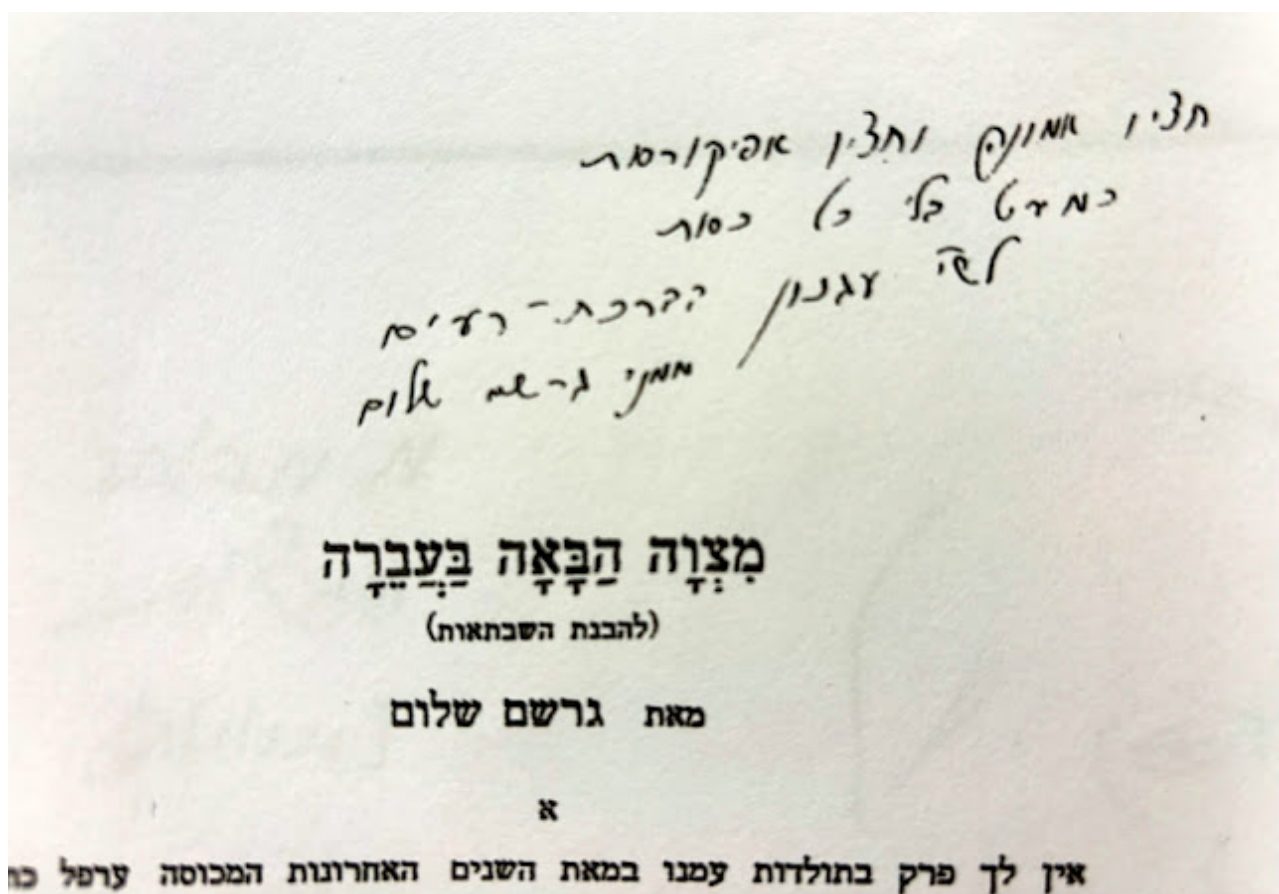 חציו אמונה וחציו אפיקורסות
כמעט בלי כל כסות
לש״י עגנון בברכת־רעים
ממני גרשם שלום
מִצְוָה הַבָּאָה בַּעֲבֵרָה
(להבנת השבתאות)
מאת גרשם שלום
א
אין לך פרק בתולדות עמנו במאת השנים האחרונות המכוסה ערפל